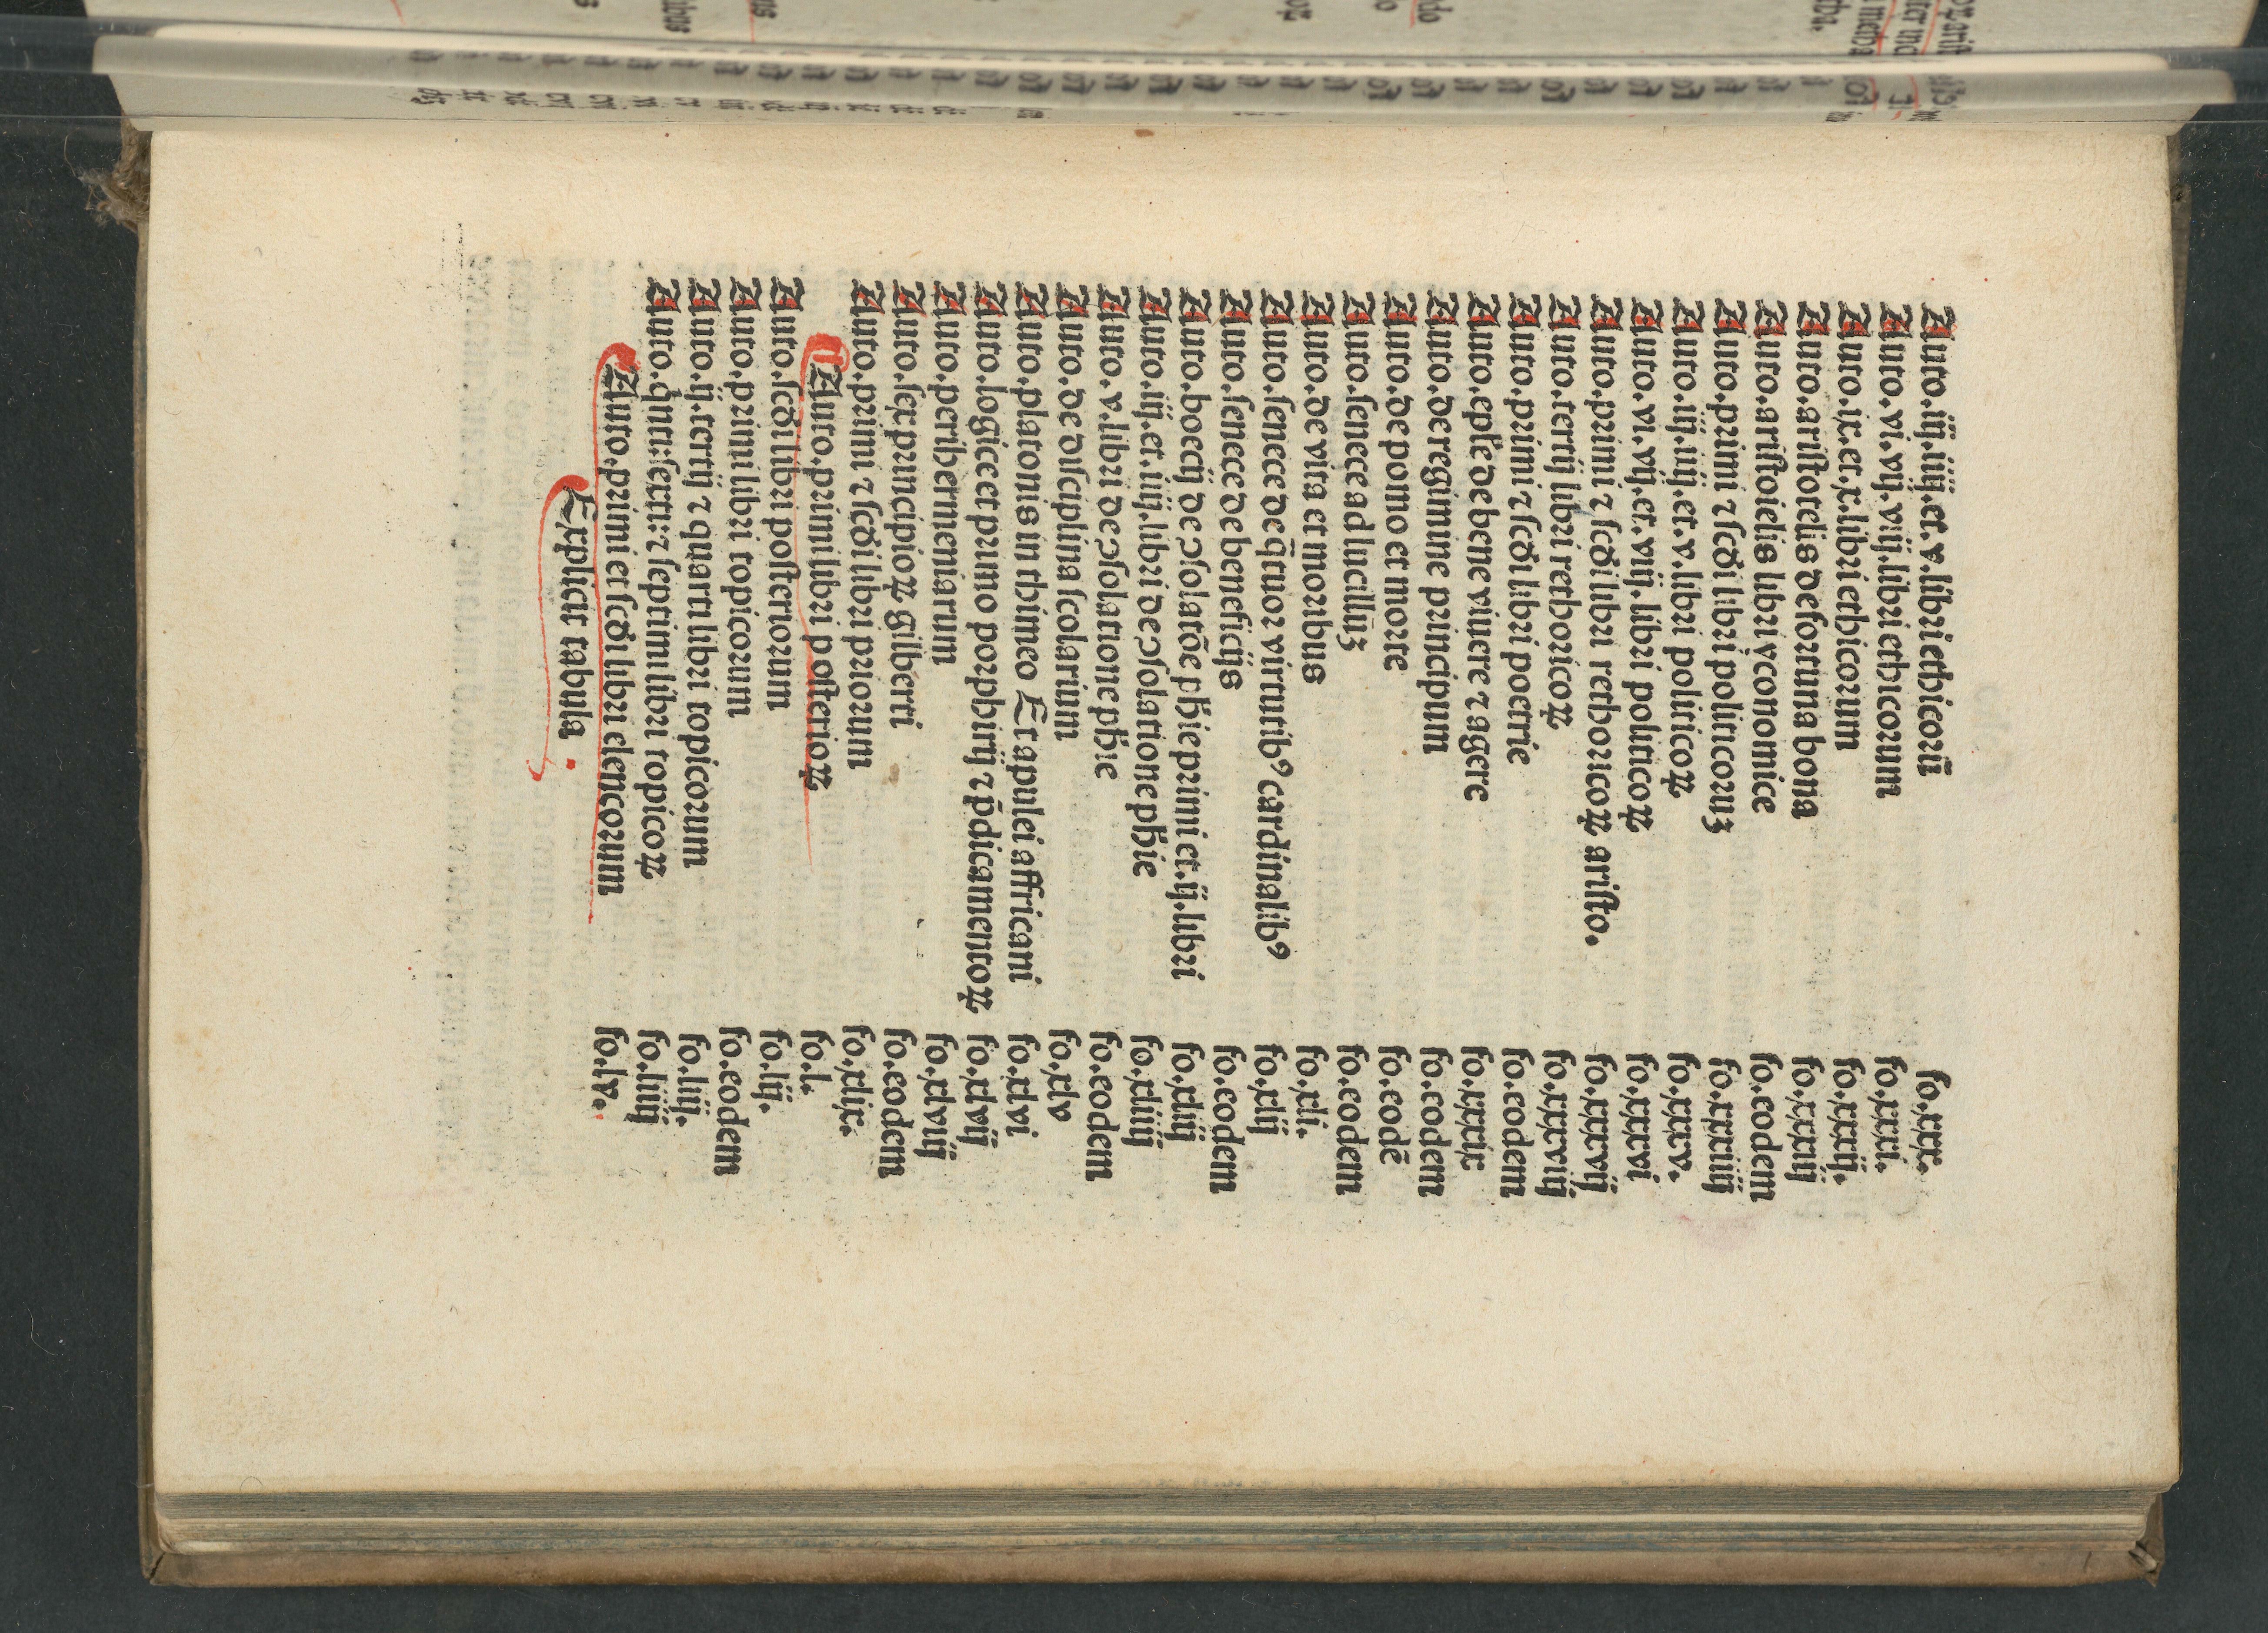 Aucto.iij.iiij.et.v.libri ethicorū fo.xxx.
Aucto.vi.vij.viij.libri ethicorum fo.xxxi.
Aucto.ix.et.x.libri ethicorum fo.xxxij.
Aucto.aristotelis de fortuna bona fo.xxxiij
Aucto.aristotelis libri yconomice fo.eodem
Aucto.primi ⁊ scḋi libri politicoruꝫ fo.xxxiiij
Aucto.iij.iiij.et.v.libri politicoꝝ fo.xxxv.
Aucto.vi.vij.et.viij.libri politicoꝝ fo.xxxvi
Aucto.primi ⁊ scḋi libri rethoricoꝝ aristo. fo.xxxvij
Aucto.tertij libri rethoricoꝝ fo.xxxviij
Aucto.primi ⁊ scḋi libri poetrie fo.eodem
Aucto.eple de bene viuere ⁊ agere fo.xxxix
Aucto.de regimine principum fo.eodem
Aucto.de pomo et morte fo.eodē
Aucto.senece ad lucillūꝫ fo.eodem
Aucto.de vita et moribus fo.xli.
Aucto.senece de q̄tuor virtutibꝰ cardinalibꝰ fo.xlij
Aucto.senece de beneficijs fo.eodem
Aucto.boecij de ↄsolatōe ph̄ie primi et.ij.libri fo.xliij
Aucto.iij.et.iiij.libri de ↄsolatione ph̄ie fo.xliiij
Aucto.v.libri de ↄsolatione ph̄ie fo.eodem
Aucto.de disciplina scolarium fo.xlv
Aucto.platonis in thimeo Et apulei affricani fo.xlvi
Aucto.logice et primo porphirij ⁊ p̄dicamentoꝝ fo.xlvij
Aucto.perihermeniarum fo.xlviij
Aucto.sex principioꝝ gilberti fo.eodem
Aucto.primi ⁊ scḋi libri priorum fo.xlix.
Aucto.primi libri posterioꝝ fo.l.
Aucto.scḋi libri posteriorum fo.lij.
Aucto.primi libri topicorum fo.eodem
Aucto.ij.tertij ⁊ quarti libri topicorum fo.liij.
Aucto.quinti:sexti:⁊ septimi libri topicoꝝ fo.liiij
Aucto.primi et scḋi libri elencorum fo.lv.
Explicit tabula.